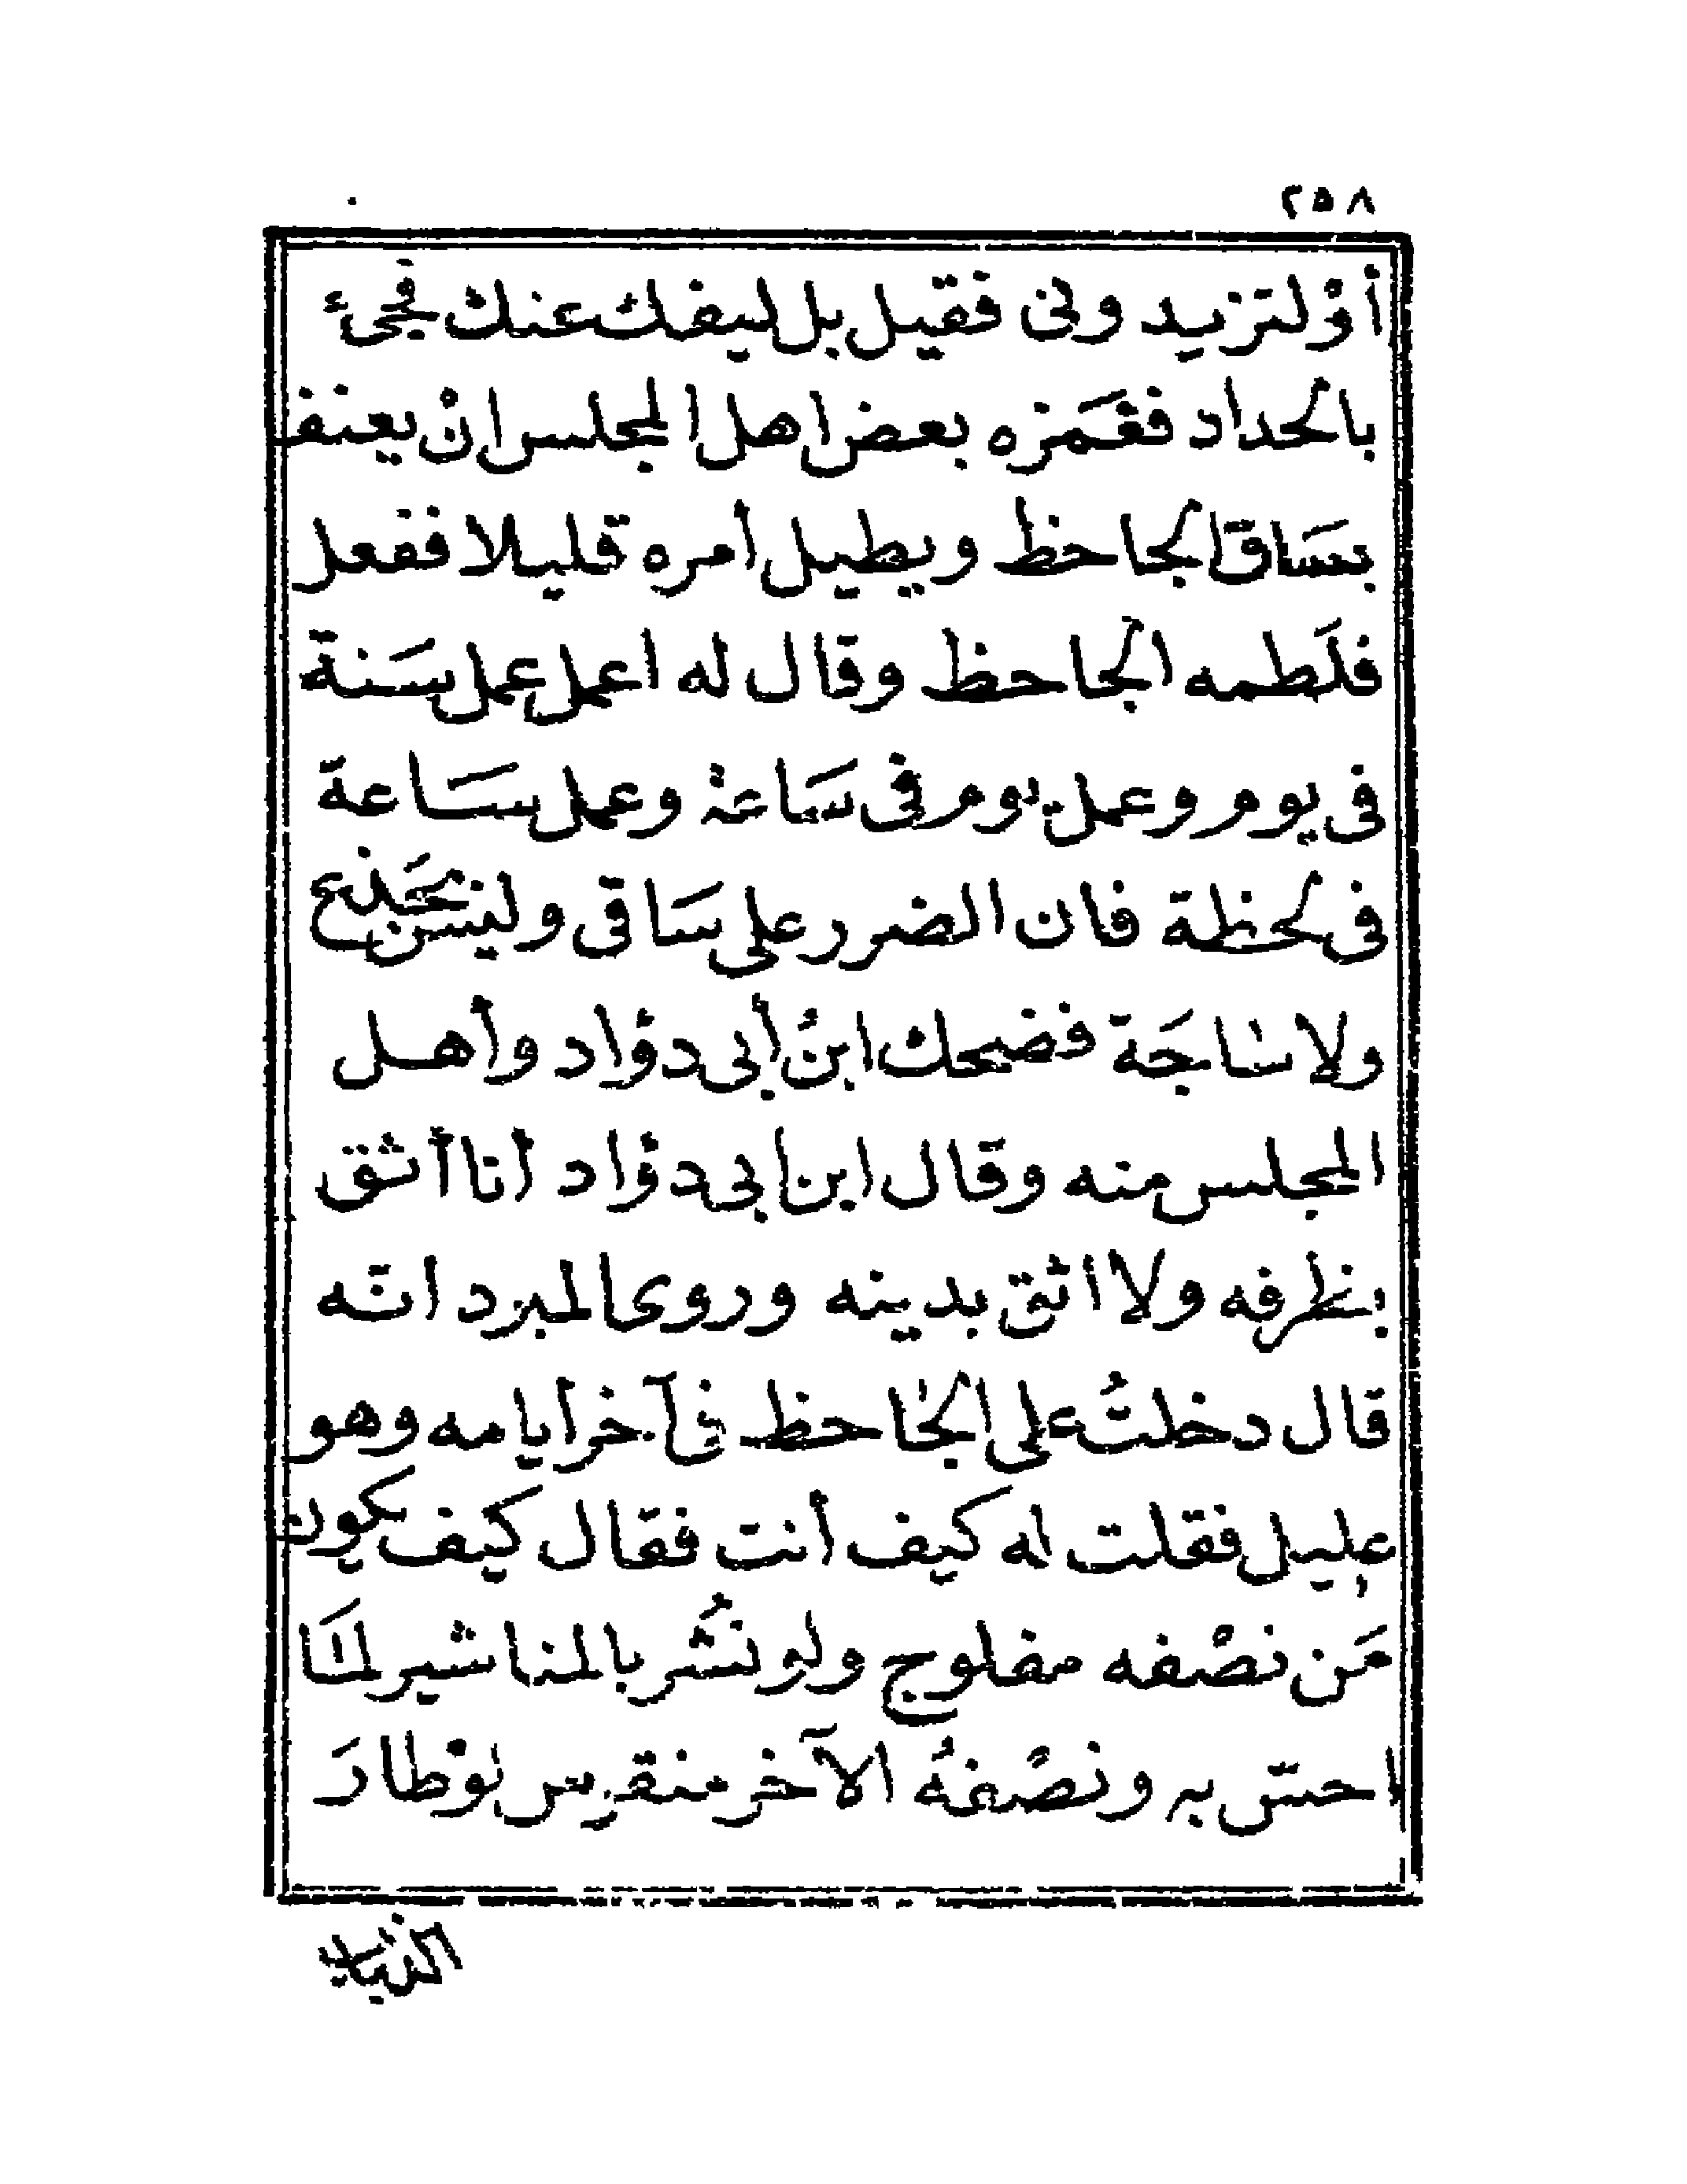 ٢٥٨
أوْلتزيد ونى فقيل بل ليفك عنك فجىء
بالحداد فغَمَزه بعض اهل المجلس انْ يعنف
بسَاق الجاحظ ويطيل أمره قليلا ففعل
فلَطمه الجاحظ وقال له اعمل عمل سَنة
فى يوم وعمل يوم فى سَاعة وعمل سَاعة
فى لحظة فان الضرر على سَاقى وليس بجَذع
ولا ساجَة فضحك ابنُ أبى دؤاد وأهل
المجلس منه وقال ابن ابى دؤاد أنا أثق
بظرفه ولا اثق بدينه وروى المبرد انّه
قال دخلتُ على الجاحظ فى آخر أيامه وهو
عليل فقلت له كيف أنت فقال كيف يكون
مَن نصْفه مفلوج ولو نُشر بالمناشير لمَا
احسّ به ونصْفهُ الآخر منقرس لوْ طارَ
الذباب